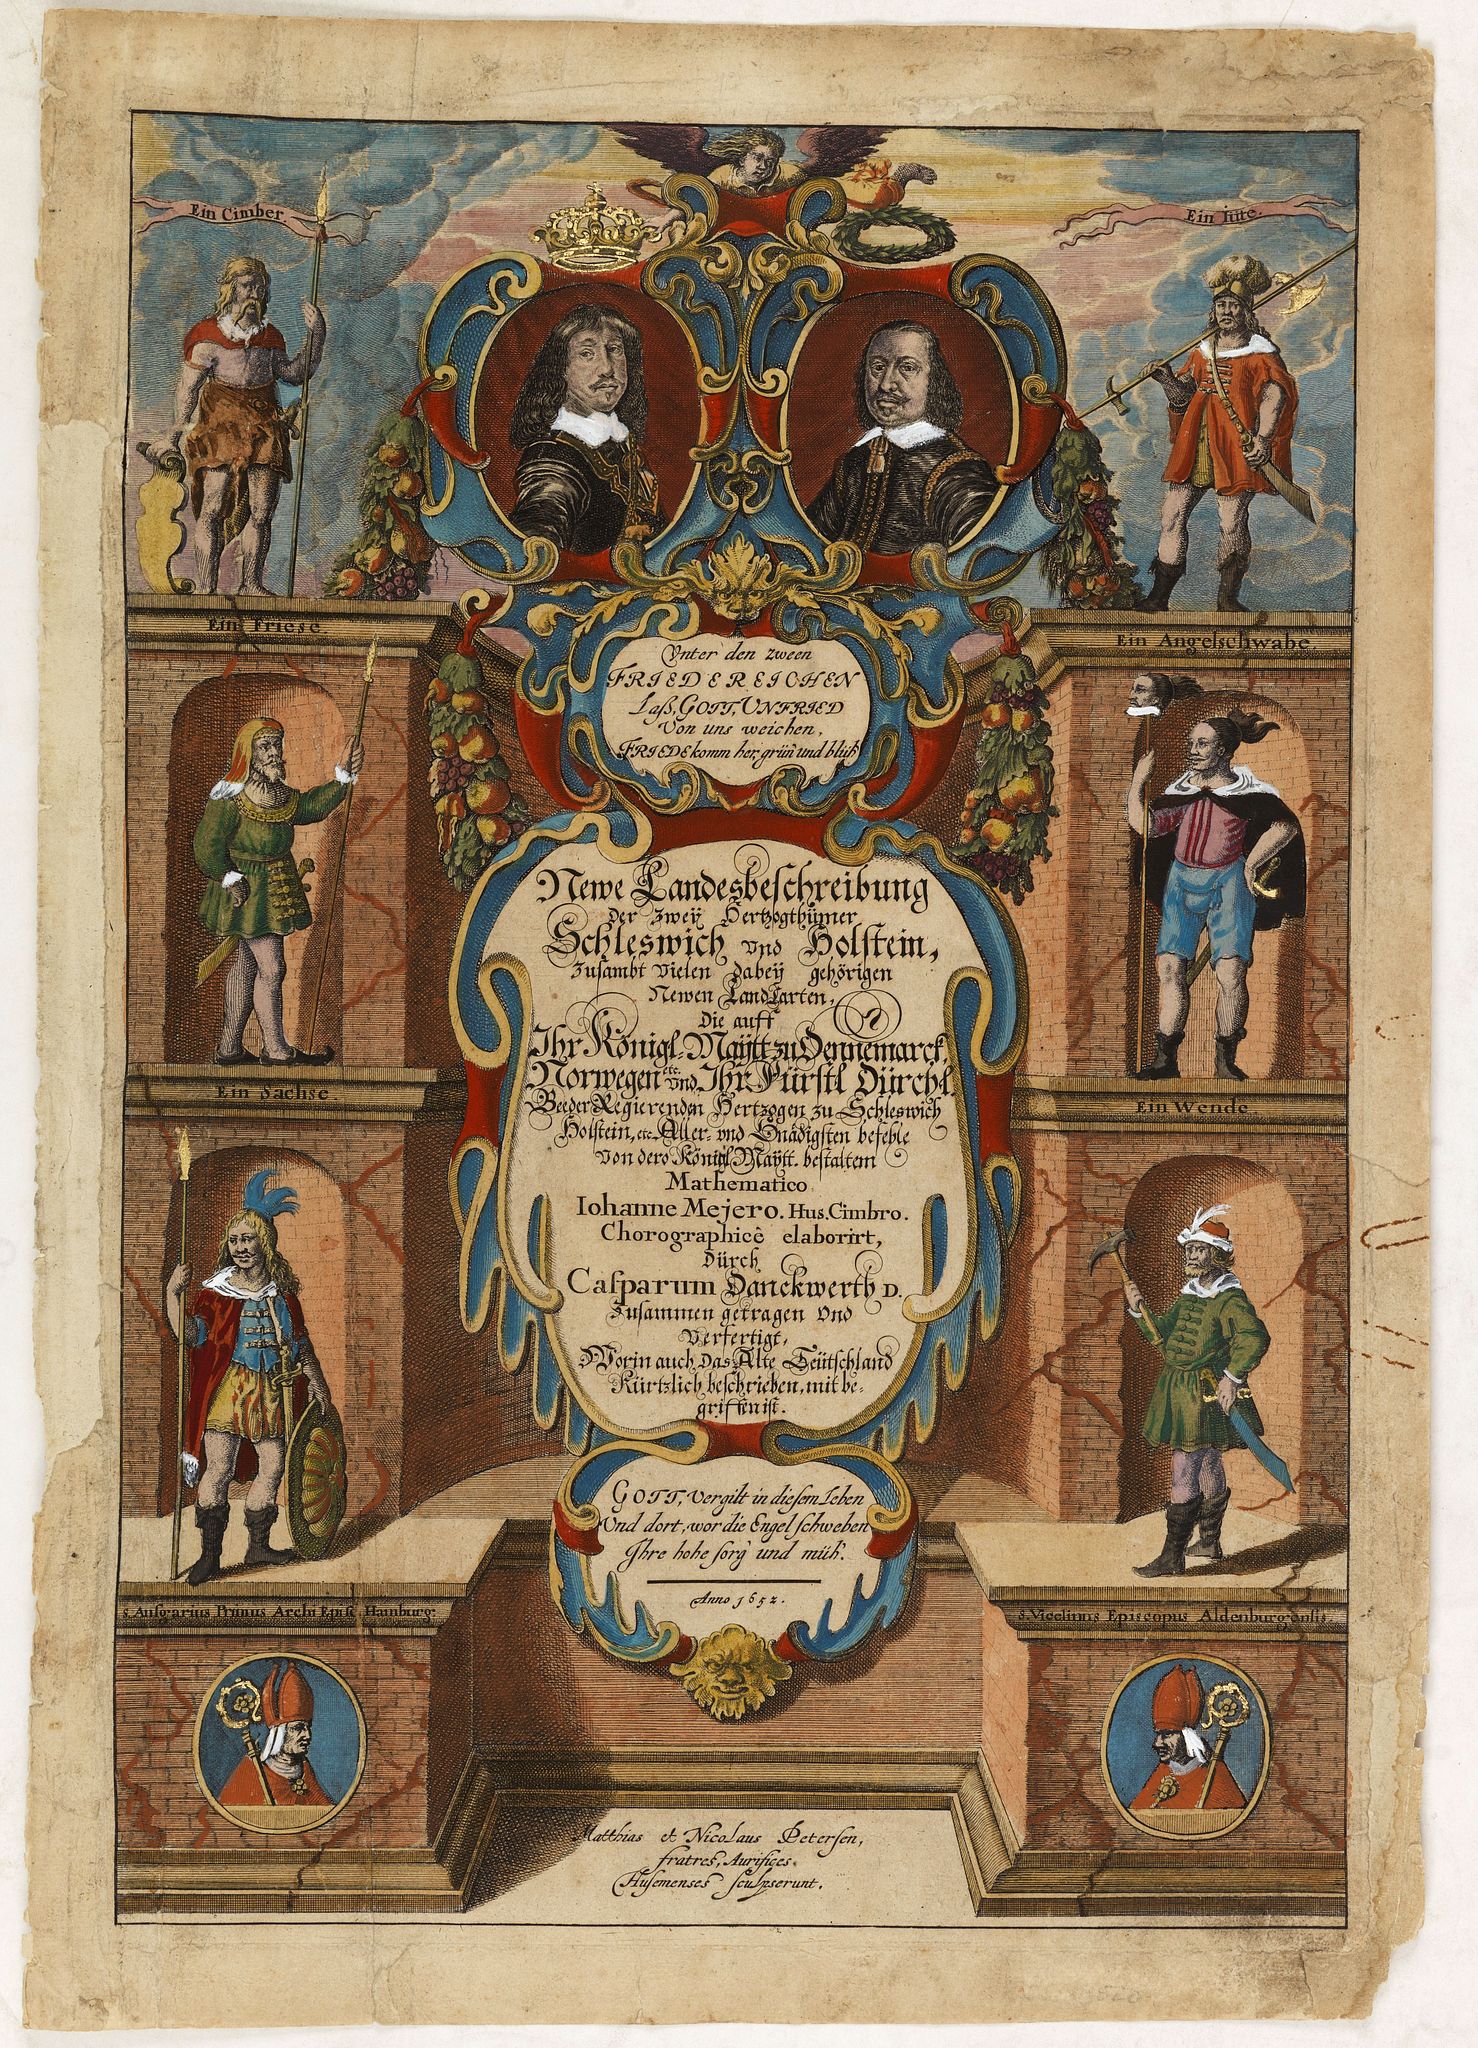 Ein Cimber
Ein Iüte.
Ein Friese.
Ein Angelschwabe.
Vnter den zween
FRIEDEREICHEN
Laß, GOTT, VNFRIED
Von uns weichen,
FRIEDE komm her, grün und blüh
Newe Landesbeschreibung
Der Zweÿ Hertzogthümer
Schleswich vnd Holstein,
Zusambt Vielen dabeÿ gehörigen
Newen LandCarten,
Die auff
Ihr Königl. Maÿtt zu Dennemarck,
Norwegen etc. vnd Ihr Fürstl Dürchl.
Beeder Regierenden Hertzogen zu Schleswich
Holstein, etc Aller- vnd Gnädigsten befehle
Von dero Königl Maÿtt. bestaltem
Mathematico
Iohanne Mejero. Hus. Cimbro.
Chorographicê elaborirt,
Dürch
Casparum Danckwerth D.
Zusammen getragen Vnd
Verfertigt,
Worin auch Das Alte Teütschland
Kürtzlich beschrieben, mit be-
griffen ist.
Ein Sachse.
Ein Wende.
GOTT, Vergilt in diesem Leben
Und dort, wor die Engel schweben
Ihre hohe sorg und müh.
Anno 1652.
S. Ansgarius Primus Archi Episc Hamburg:
S. Vicelinus Episcopus Aldenburgensis.
Matthias et Nicolaus Petersen,
fratres, Aurifices
Husemenses sculpserunt.